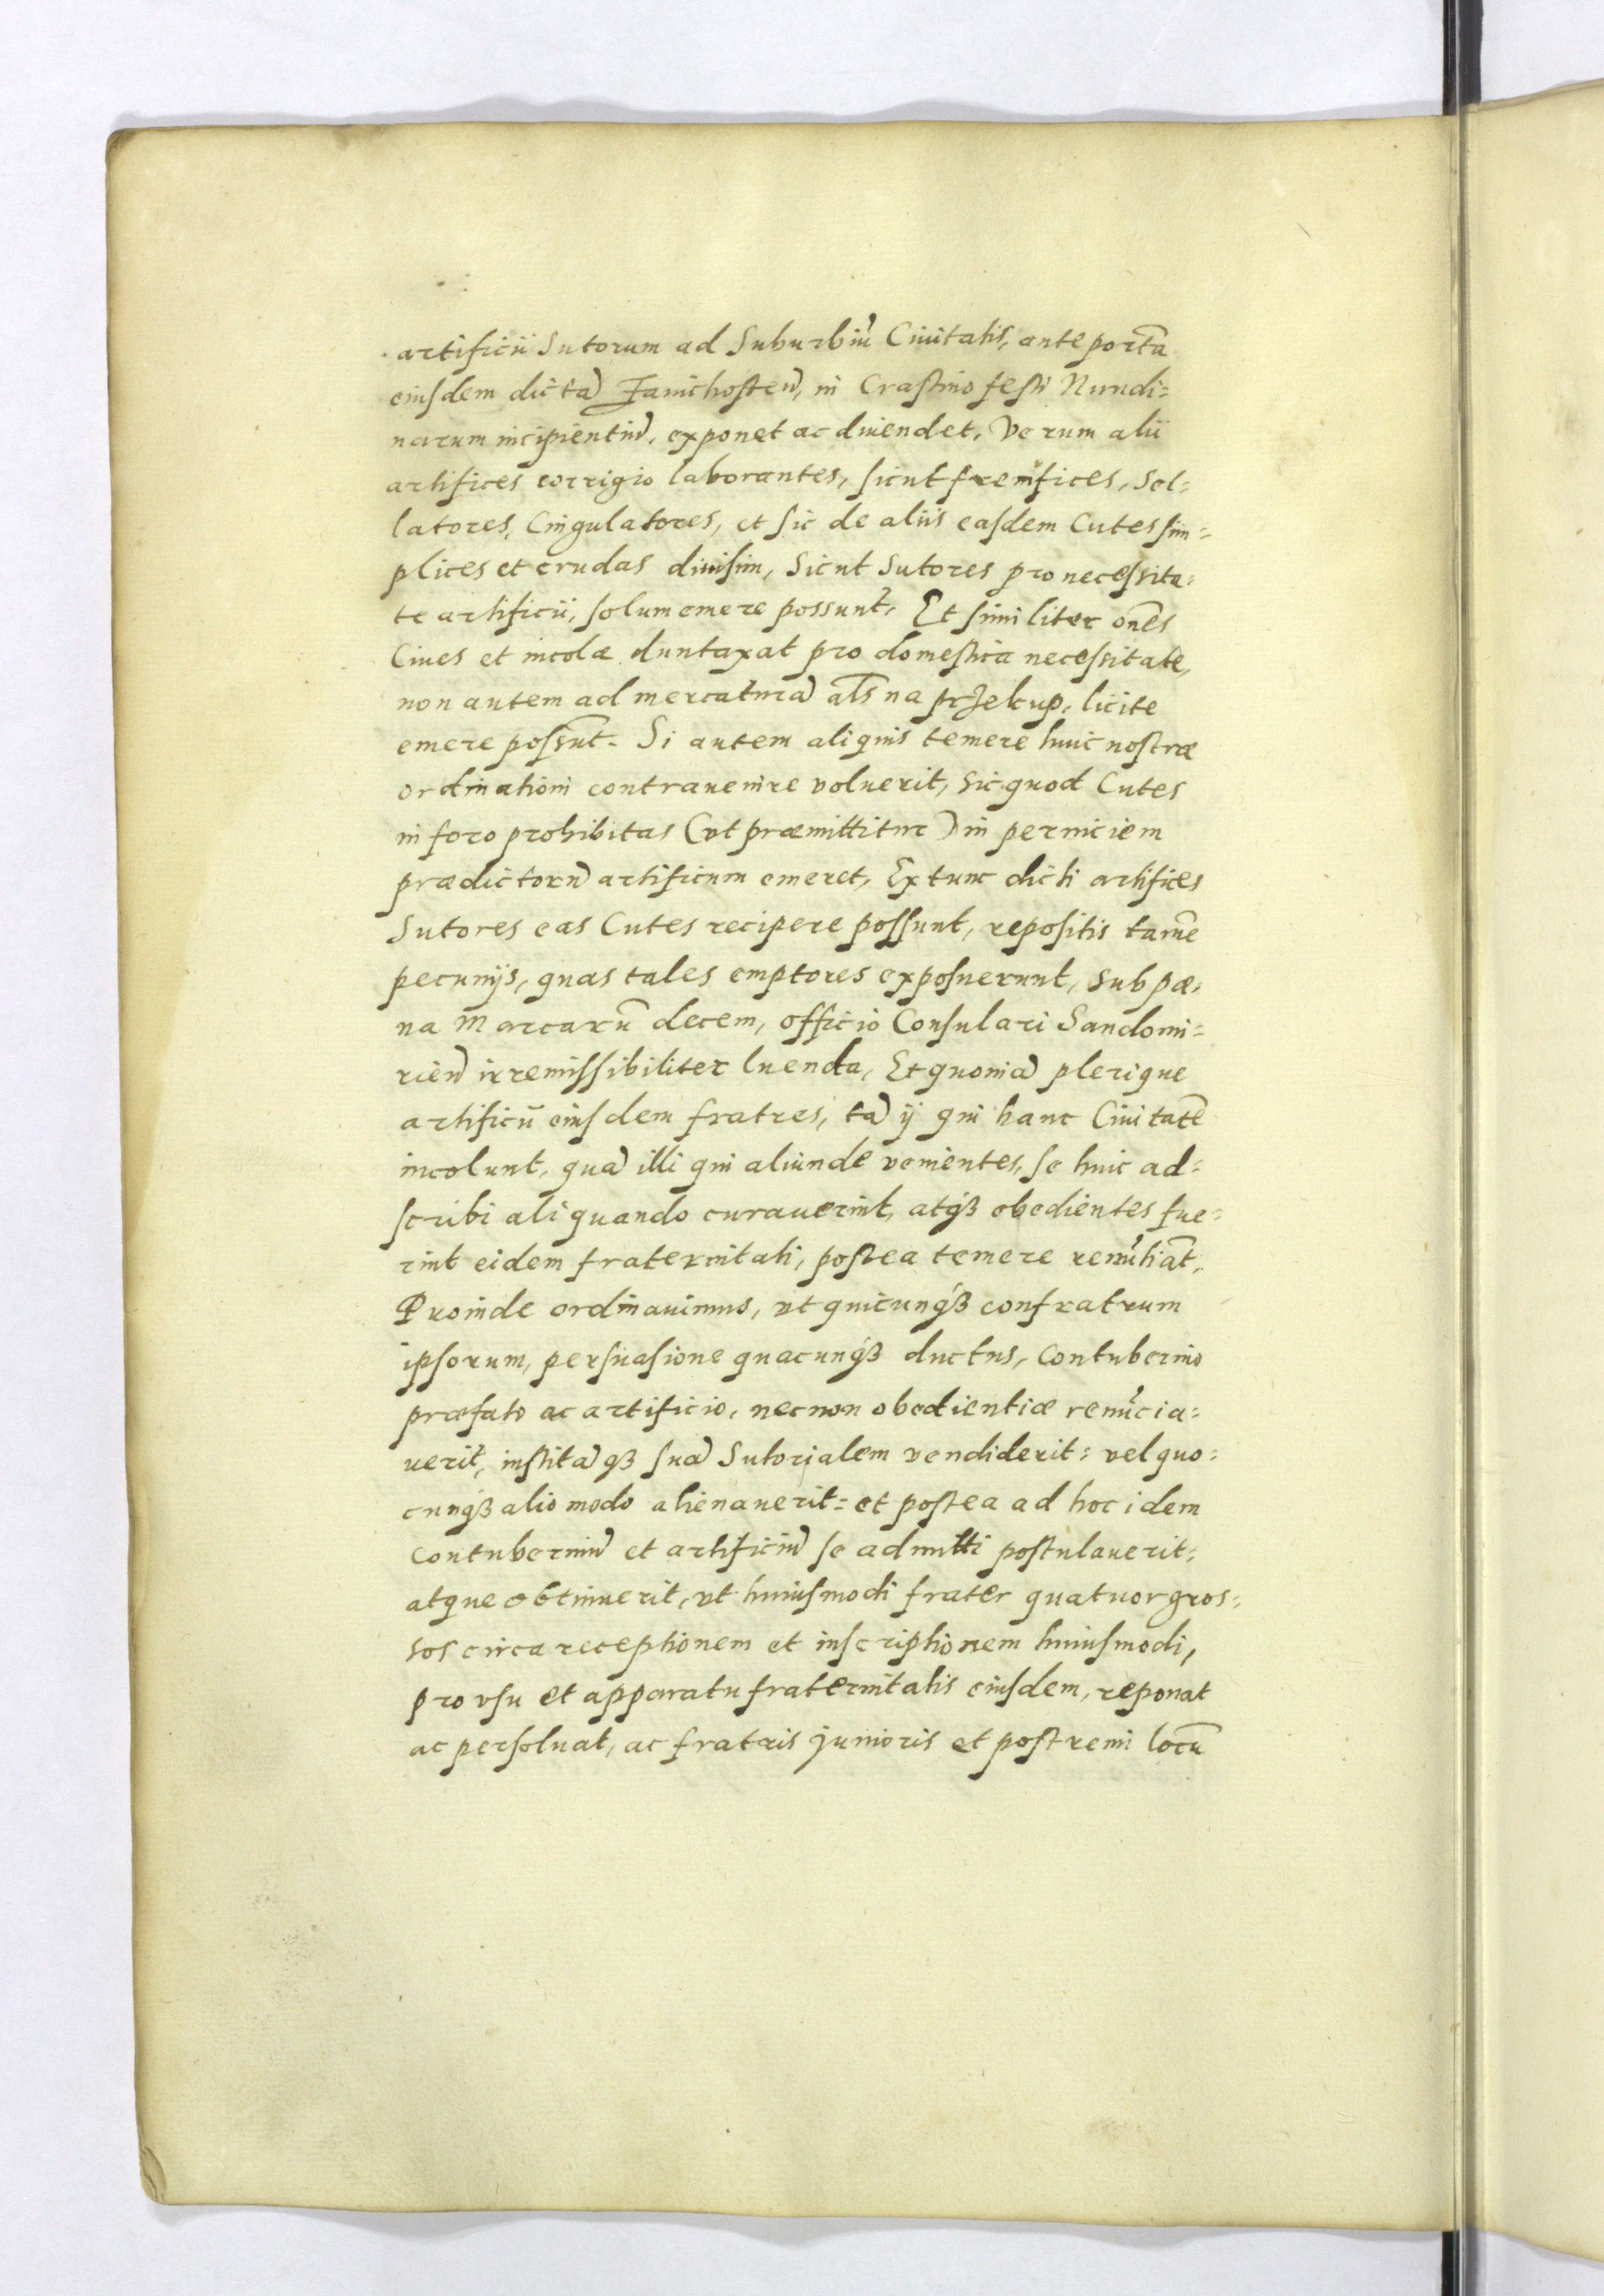 artificii Sutorum ad Suburbiũ Ciuitatis, ante portã
eiusdem dictã Zauichosten̄, in Crastino festi Nundi=
narum incipientiũ, exponet ac diuendet. Verum alii
artifices corrigio laborantes, sicut frenifices, Sel=
latores, Cingulatores, et sic de aliis easdem Cutes sim=
plices et crudas diuisim, Sicut Sutores pro necessita=
te artificii, solum emere possunt. Et similiter oñes
Ciues et incolæ duntaxat pro domestica necessitate,
non autem ad mercaturã als̃ na przekup, licite
emere possũnt. Si autem aliquis temere huic nostræ
ordinationi contrauenire voluerit, sic quod Cutes
in foro prohibitas (vt præmittitur) in perniciem
prædictorũ artificum emeret, Extunc dicti artifices
Sutores eas Cutes recipere possunt, repositis tamẽ
pecunijs, quas tales emptores exposuerunt, sub pæ=
na Marcarũ decem, officio Consulari Sandomi=
rien̄ irremissibiliter luenda, Et quoniã plerique
artificii eiusdem fratres, tã ij qui hanc Ciuitatẽ
incolunt, quã illi qui aliunde venientes, se huic ad=
scribi aliquando curauerint, atqꝫ obedientes fue=
rint eidem fraternitati, postea temere renũtiãt,
Proinde ordinauimus, vt quicunqꝫ confratrum
ipsorum, persuasione quacunqꝫ ductus, Contubernio
præfato ac artificio, necnon obedientiæ renũcia=
uerit, institãqꝫ suã Sutorialem vendiderit: vel quo=
cunqꝫ alio modo alienauerit: et postea ad hoc idem
Contuberniũ et artificiũ se admitti postulauerit,
atque obtinuerit, vt huiusmodi frater quatuor gros=
sos circa receptionem et inscriptionem huiusmodi,
pro vsu et apparatu fraternitatis eiusdem, reponat
ac persoluat, ac fratris junioris et postremi locũ